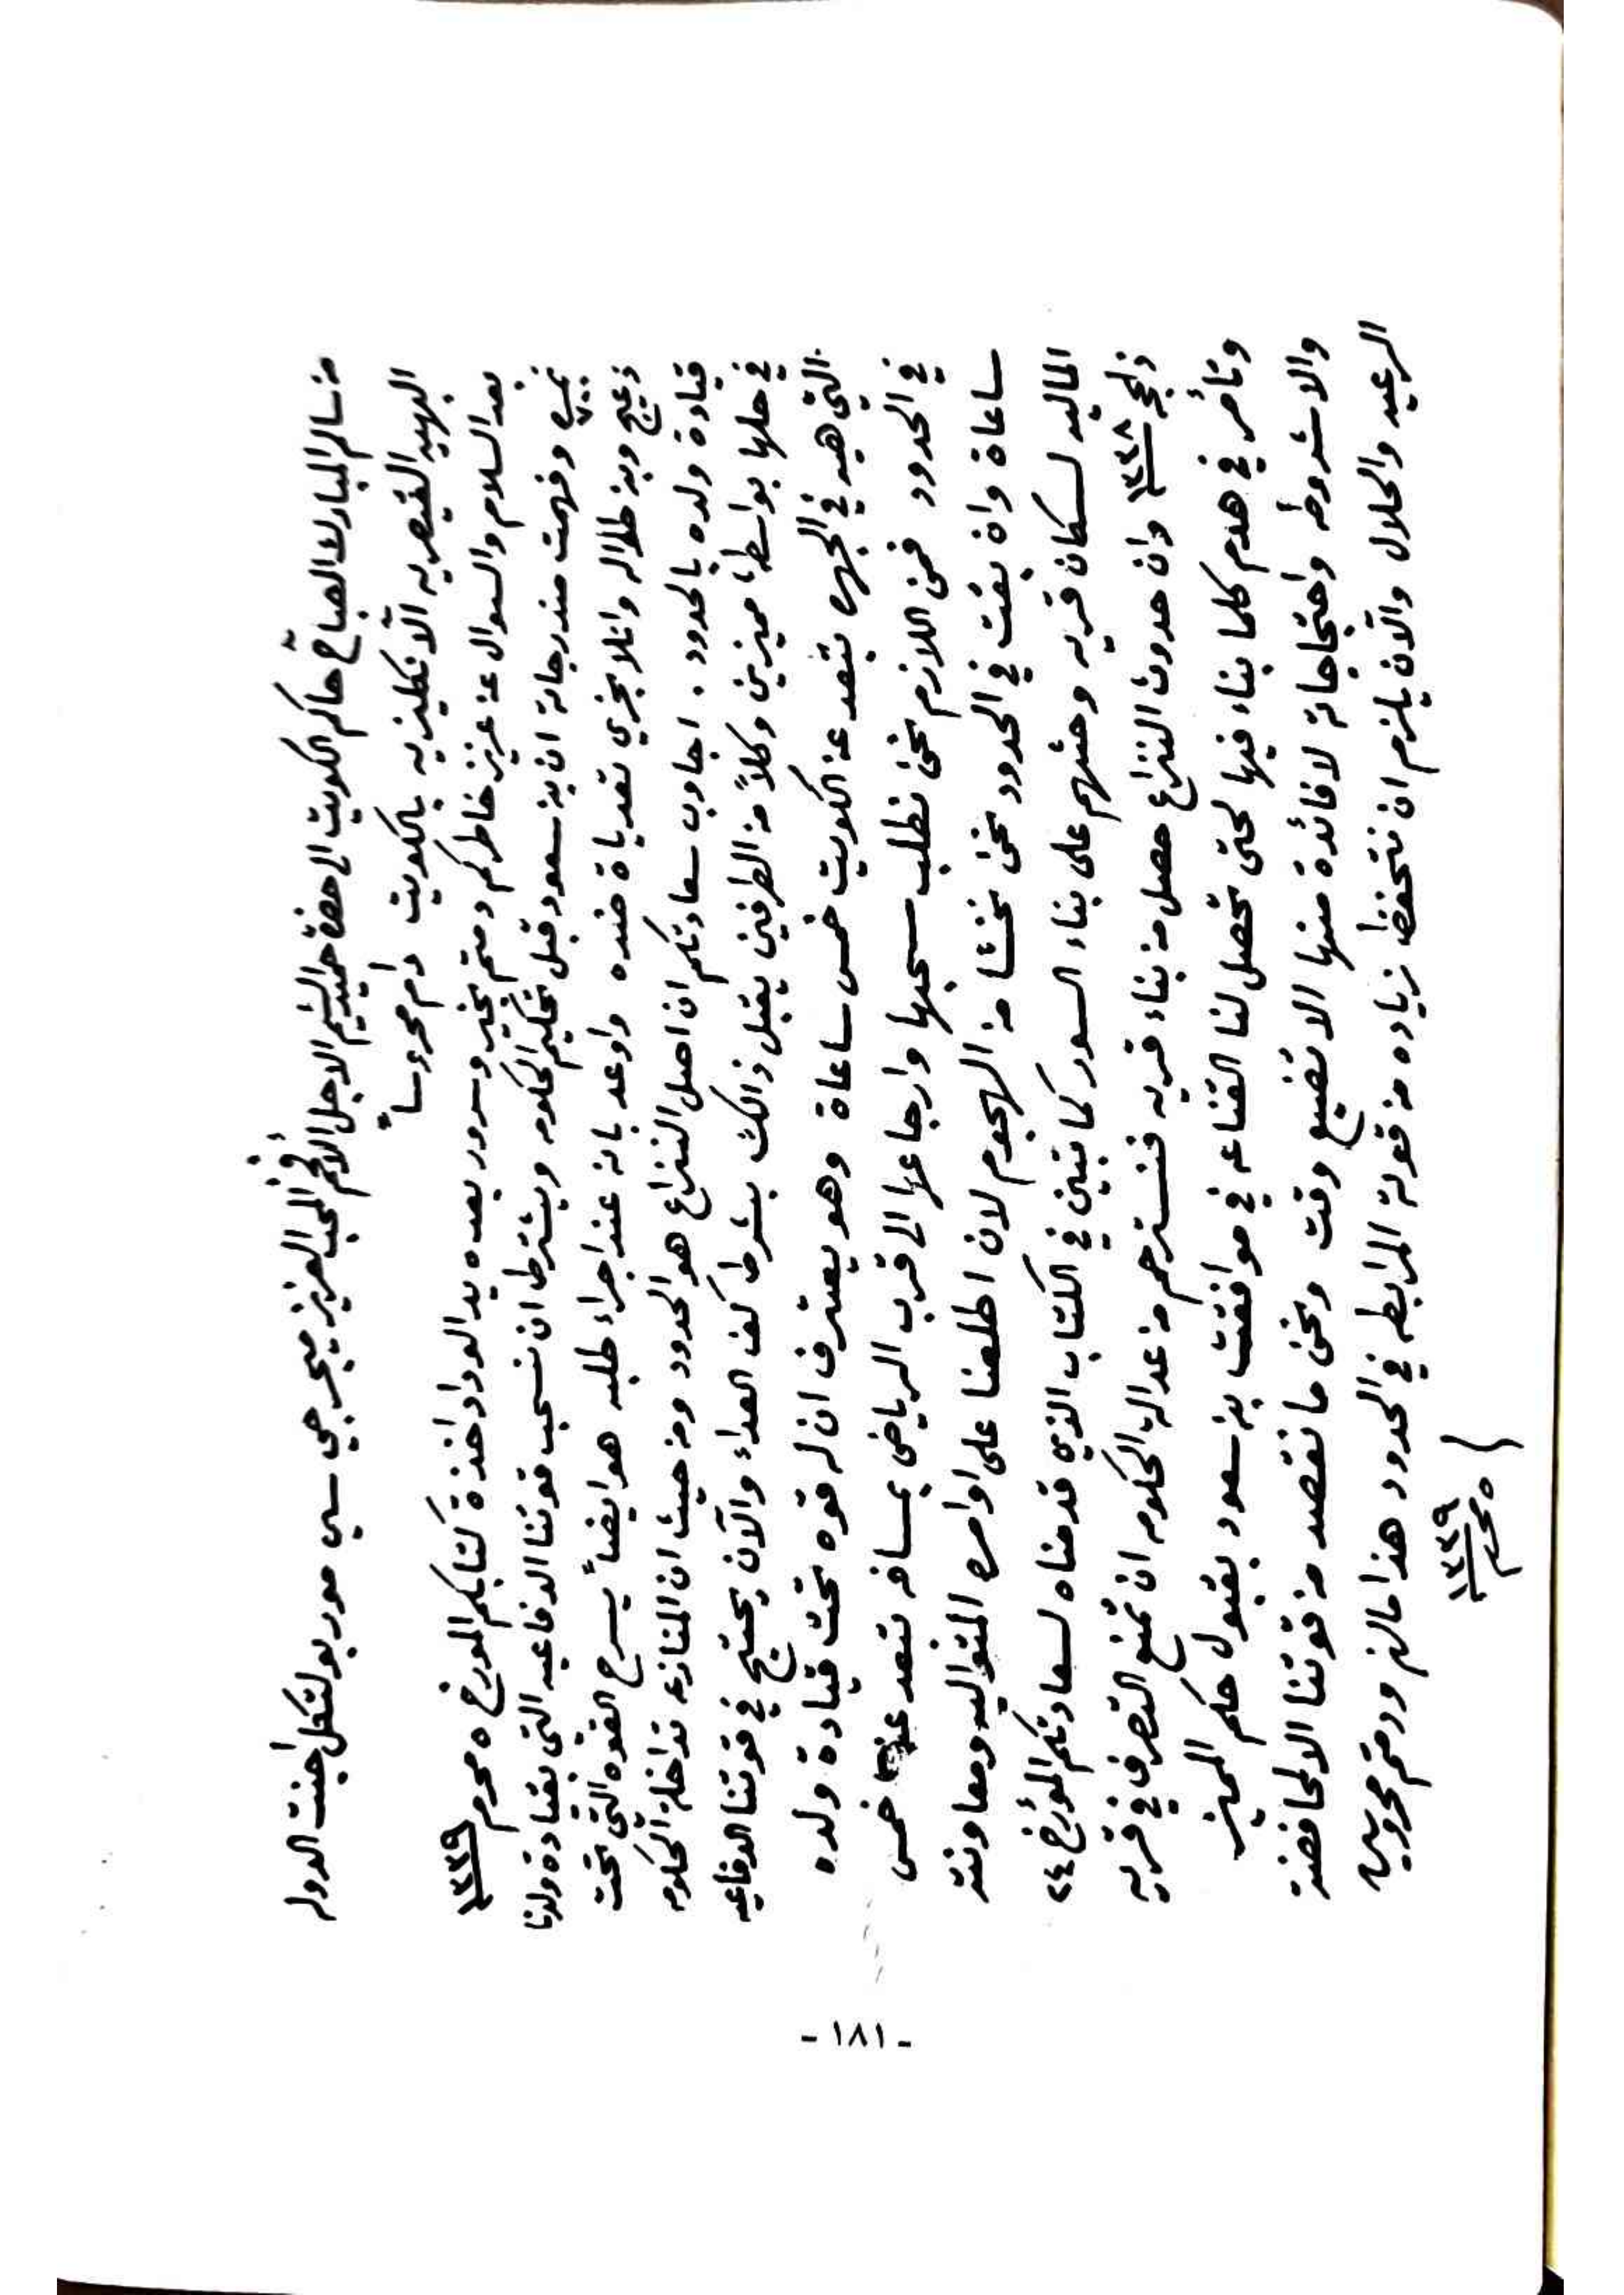 من سالم المبارك الصباح حاكم الكويت الى حضرة حميد الشيم الاجل الافخم المحب العزيز ميجر جي سي مور بولتكل اجنت الدوله
البهيه القيصريه الانكليزيه بالكويت دام محروساً
بعد السلام والسوال عن عزيز خاطركم دمتم بخير وسرور بعده بيد الوداد اخذة كتابكم المورخ ٥ محرم ١٣٣٩
وفهمت مندرجاته ان بن سعود قبل تحكيم الحكومه ويشترط ان نسحب قوتنا الدفاعيه التي بقيادة ولدنا
دعيج وبن طلاله وانلا يجري تعدياة ضده واوعد بانه عند اجراء طلبه هو ايضاً يسرح القوه التي تحت
قيادة ولده بالحدود. اجاوب سعادتكم ان اصل النزاع هو الحدود ومن حيث ان المنازعه تداخلة الحكومه
في حلها بواسطة مميزين وكلاً من الطرفين يقبل ذالك بشرط كف العداء والآن يحتج في قوتنا الدفاعيه
التي هيه في الجهره بتعد عن الكويت خمس ساعاة وهو يعترف ان له قوه تحت قيادة ولده
في الحدود فمن اللازم نحن نطلب سحبها وارجاعها الى قرب الرياض بمسافه تتعد عنه خمس
ساعاة وان بقت في الحدود نحن نخشا من الهجوم لان اطلعنا على اوامره المتواليه ومعاونته
الماليه لسكان قريه وحثهم على بناء السور كما تبين في الكتاب الذي قدمناه لسعادتكم المؤرخ ٢٤
ذلحجه ١٣٣٨ وان حدوث النزاع حصل من بناء قريه فنسترحم من عدالة الحكومه ان تمنع التصرف في قريه
وتأمر في هدم كلما بناء فيها لحتى تحصل لنا القناعه في موافقت بن سعود بقبول حكم المميز
والاشروطه واحتجاجاته لا فائدة منها الا تضييع وقت ونحن ما نقصد من قوتنا الا لمحافضة
الرعيه والحلال والآن يلزم ان نتحفظ زياده من قوته المرابطه في الحدود هذا مالزم ودمتم محروسين
٥ محرم ١٣٣٩
- ١٨١ -